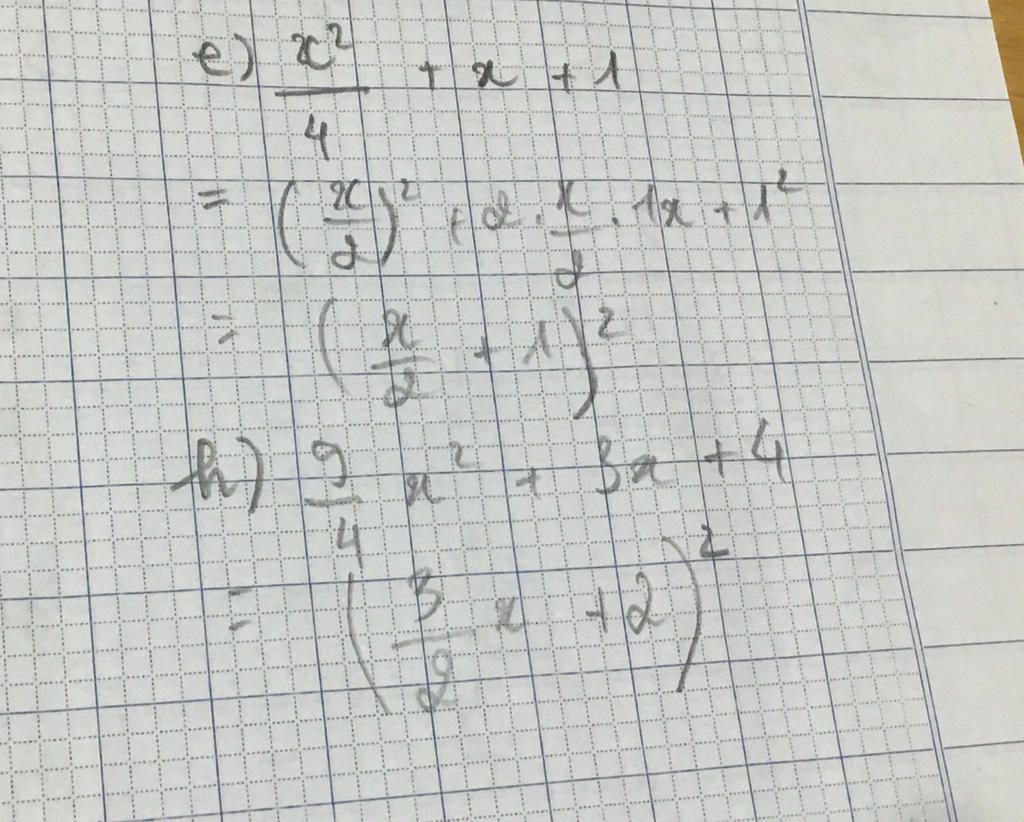 e) x²/4 + x + 1
= (x/2)² + 2 . x/2 . 1x + 1²
= (x/2 + 1)²
h) 9/4 x² + 3x + 4
= (3/2 x + 2)²